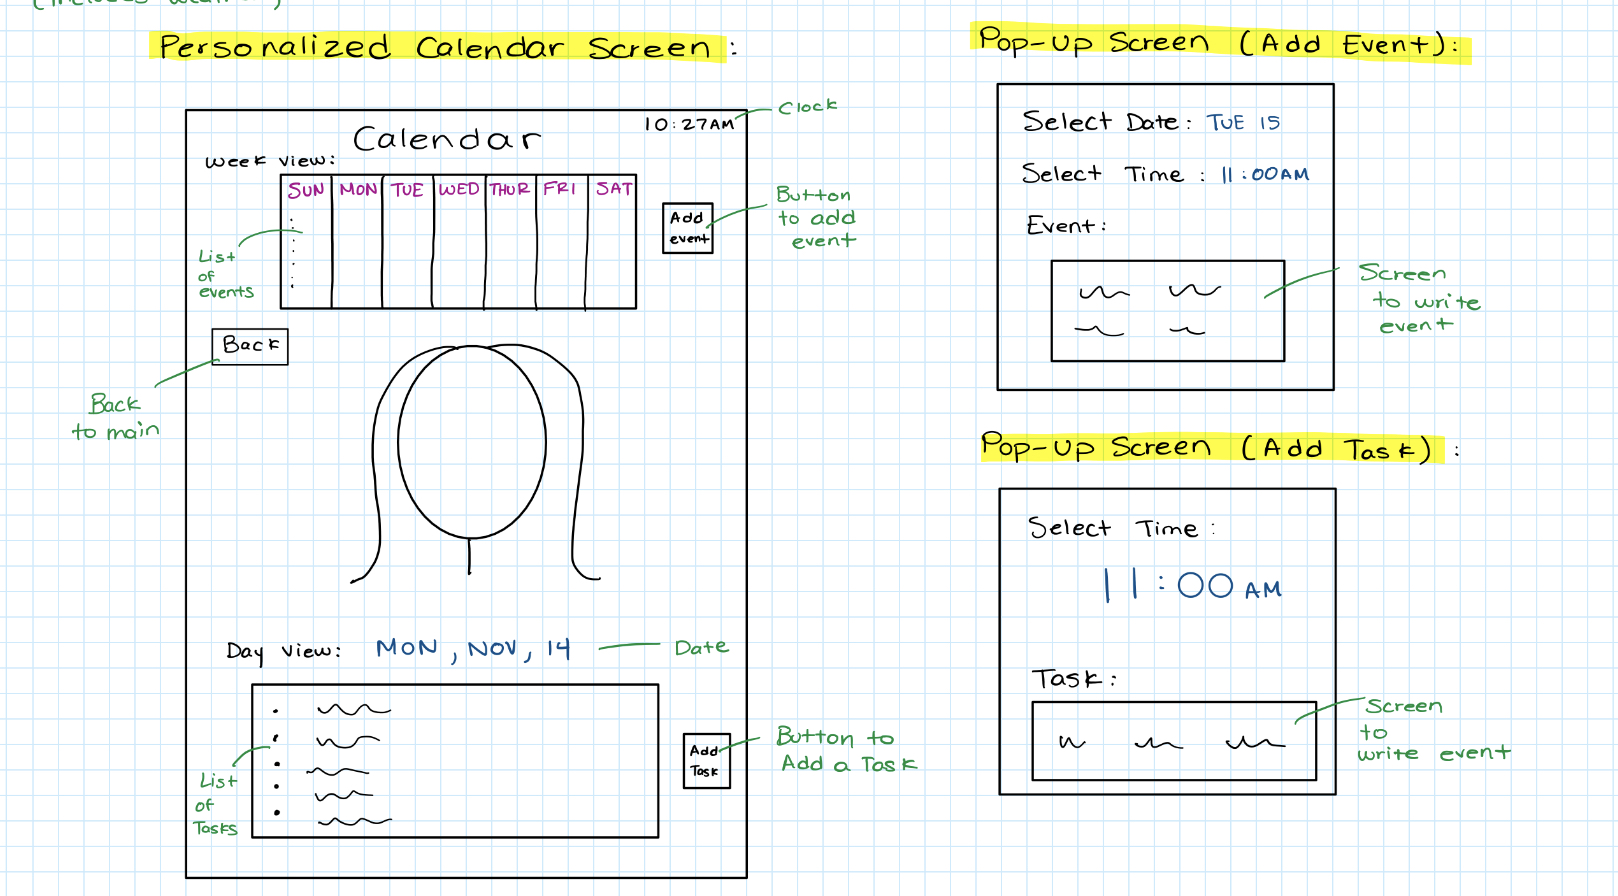 Personalized Calendar Screen :
10:27AM
Clock
Calendar
Week view:
SUN MON TUE WED THUR FRI SAT
Add
event
Button
to add
event
List
of
events
Back
Back
to main
Day view: MON, NOV, 14
Date
Add
Task
Button to
Add a Task
List
of
Tasks
Pop-Up Screen (Add Event):
Select Date: TUE 15
Select Time : 11:00AM
Event:
Screen
to write
event
Pop-Up Screen (Add Task) :
Select Time :
11:00 AM
Task:
Screen
to
write event